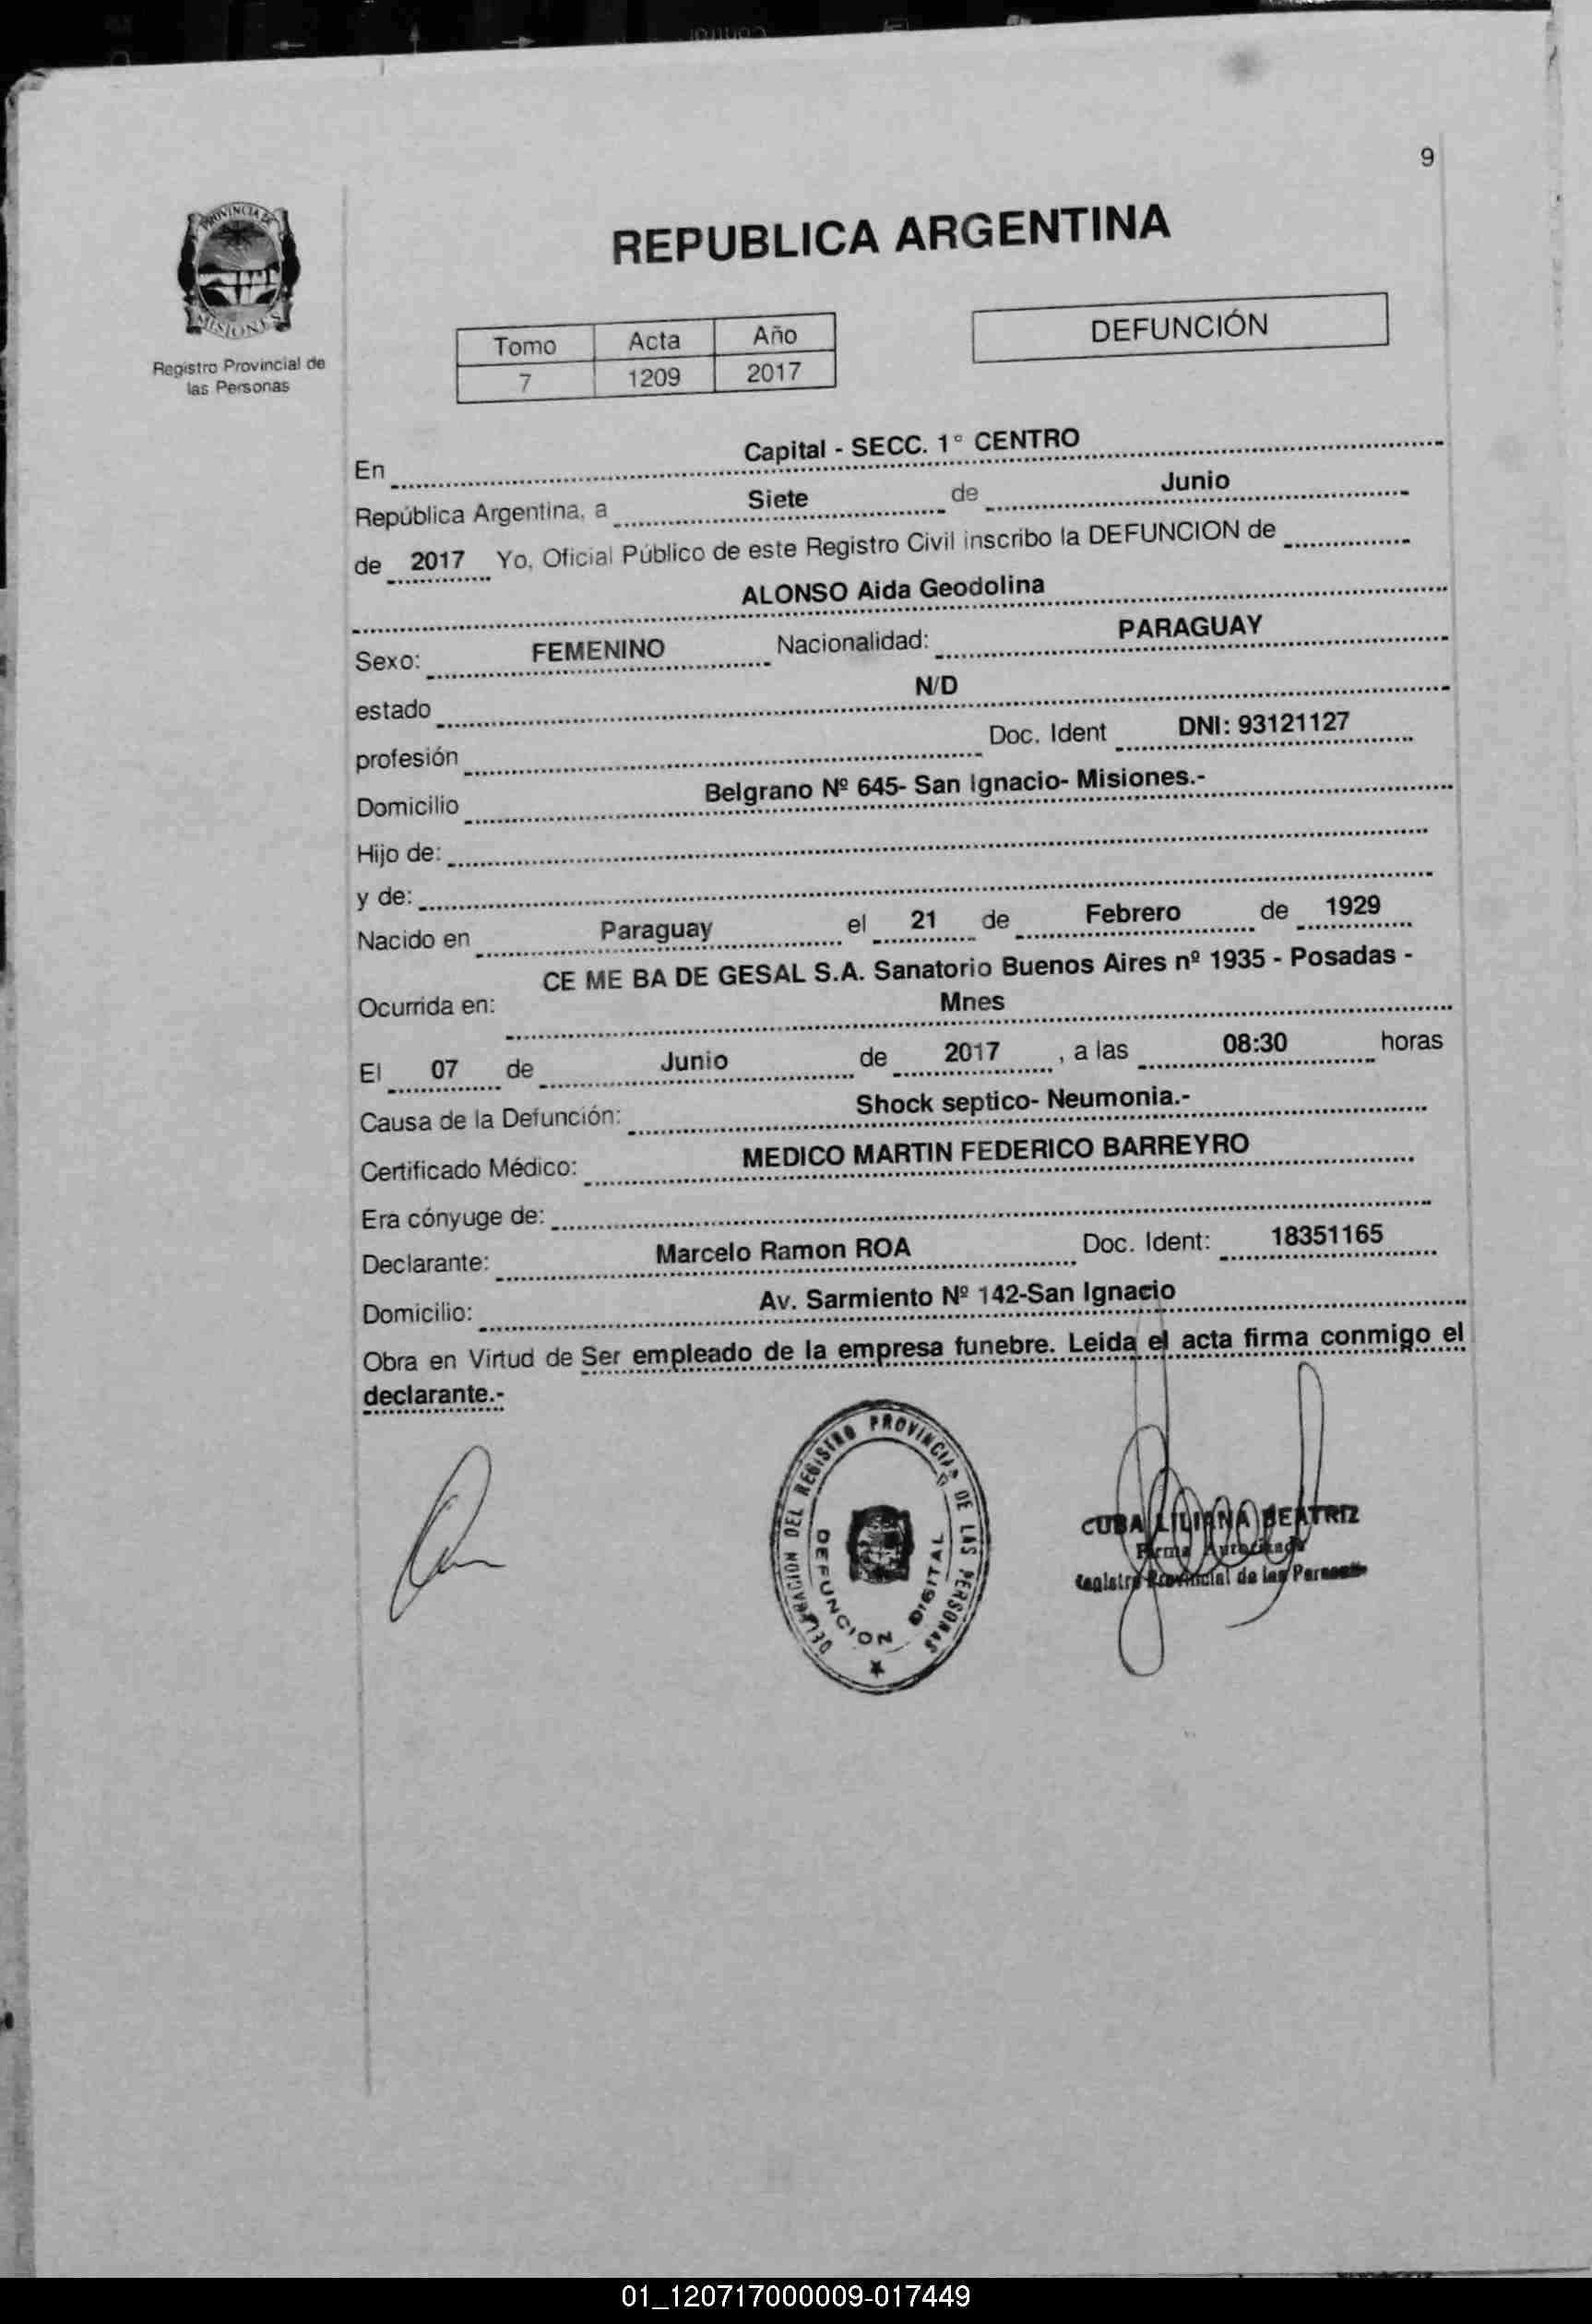 9
PROVINCIA DE
MISIONES
Registro Provincial de
las Personas
REPUBLICA ARGENTINA
Tomo Acta Año
7 1209 2017
DEFUNCIÓN
En Capital - SECC. 1° CENTRO
República Argentina, a Siete de Junio
de 2017 Yo, Oficial Público de este Registro Civil inscribo la DEFUNCION de
ALONSO Aida Geodolina
Sexo: FEMENINO Nacionalidad: PARAGUAY
estado N/D
profesión Doc. Ident DNI: 93121127
Domicilio Belgrano Nº 645- San Ignacio- Misiones.-
Hijo de:
y de:
Nacido en Paraguay el 21 de Febrero de 1929
CE ME BA DE GESAL S.A. Sanatorio Buenos Aires nº 1935 - Posadas -
Ocurrida en: Mnes
El 07 de Junio de 2017 , a las 08:30 horas
Causa de la Defunción: Shock septico- Neumonia.-
Certificado Médico: MEDICO MARTIN FEDERICO BARREYRO
Era cónyuge de:
Declarante: Marcelo Ramon ROA Doc. Ident: 18351165
Domicilio: Av. Sarmiento Nº 142-San Ignacio
Obra en Virtud de Ser empleado de la empresa funebre. Leida el acta firma conmigo el
declarante.-
DEL REGISTRO PROVINCIAL DE LAS PERSONAS
DEFUNCION DIGITAL
CUBA LILIANA BEATRIZ
Firma Autorizada
Registro Provincial de las Personas
01_120717000009-017449